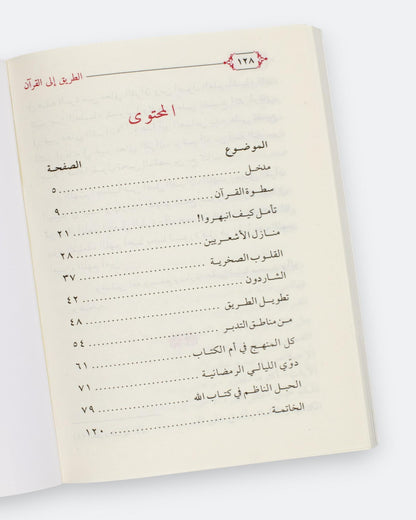 ١٢٨
الطريق إلى القرآن
المحتوى
الموضوع الصفحة
مدخل ٥
سطوة القرآن ٩
تأمل كيف انبهروا! ٢١
منازل الأشعريين ٢٨
القلوب الصخرية ٣٧
الشاردون ٤٢
تطويل الطريق ٤٨
من مناطق التدبر ٥٤
كل المنهج في أم الكتاب ٦١
دوّي الليالي الرمضانية ٧١
الحبل الناظم في كتاب الله ٧٩
الخاتمة ١٢٠